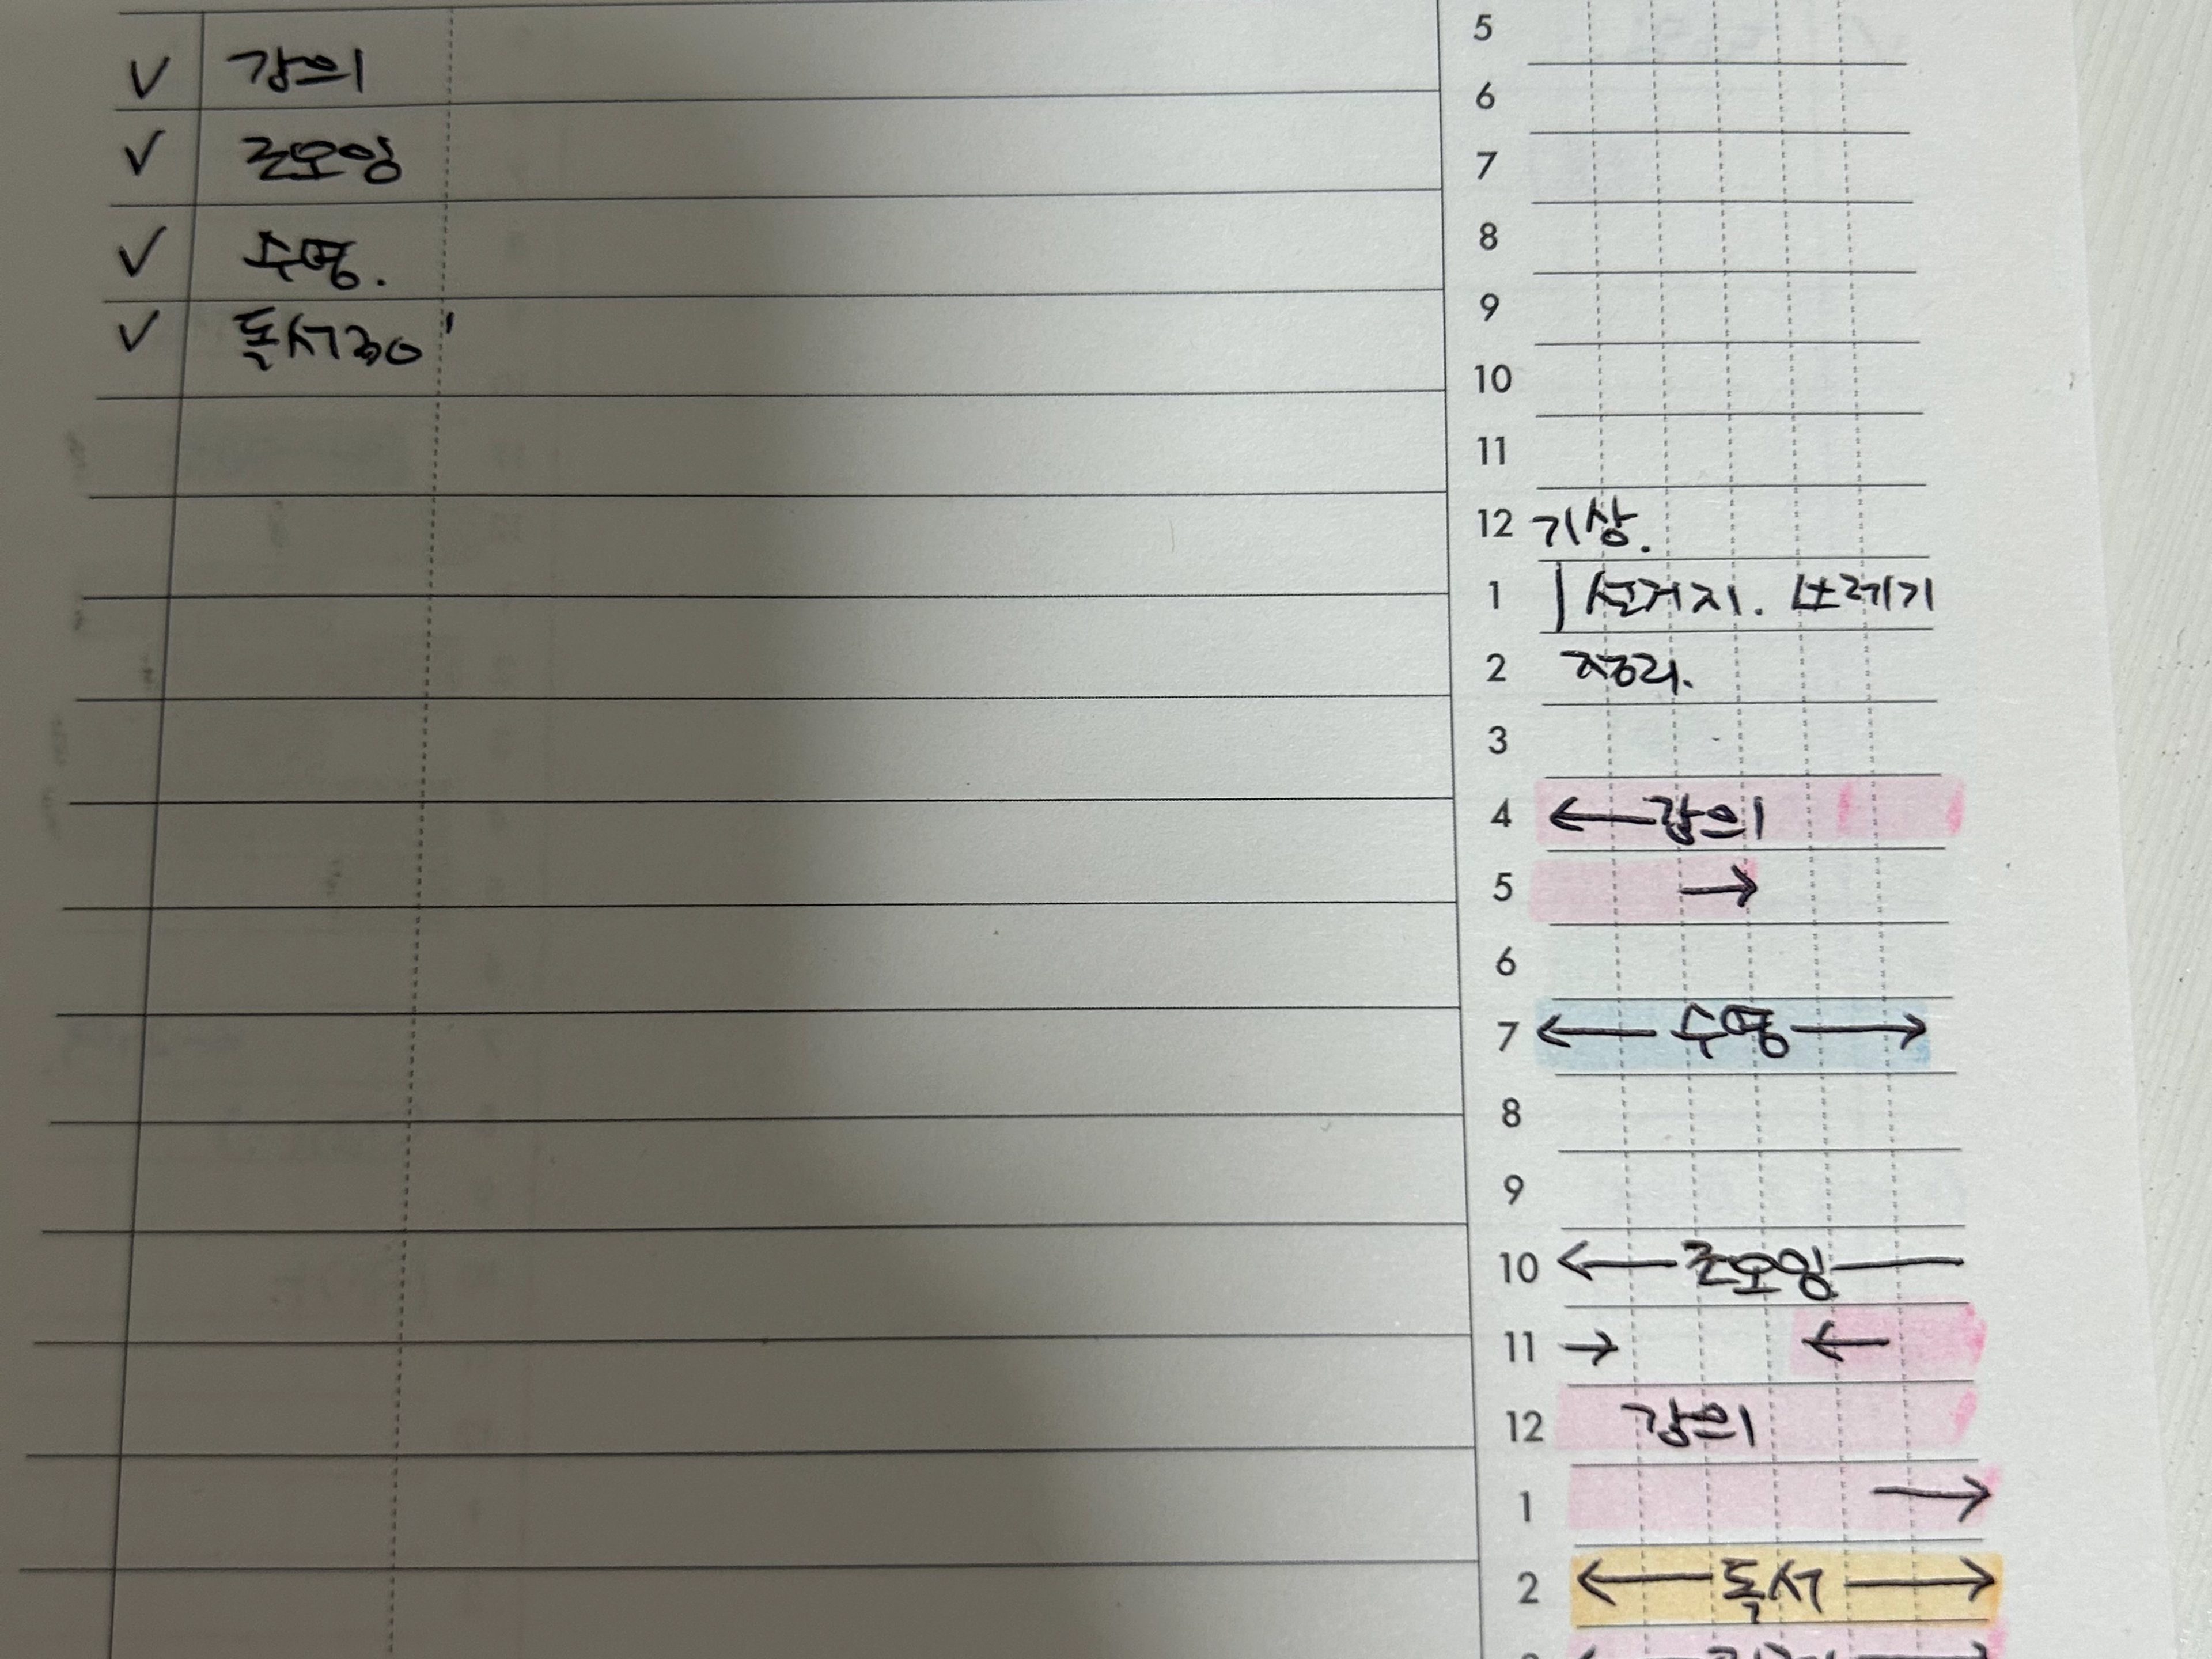 ✓ 강의
✓ 존모임
✓ 수영.
✓ 독서30'
5
6
7
8
9
10
11
12 기상.
1 설거지. 쓰레기
2 정리.
3
4 ← 강의
5 →
6
7 ← 수영 →
8
9
10 ← 존모임
11 → ←
12 강의
1 →
2 ← 독서 →